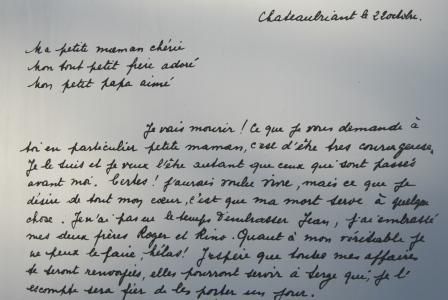 Chateaubriant le 22 octobre.
Ma petite maman chérie
Mon tout petit frère adoré
Mon petit papa aimé
Je vais mourir ! Ce que je vous demande à
toi en particulier petite maman, c'est d'être très courageuse.
Je le suis et je veux l'être autant que ceux qui sont passés
avant moi. Certes ! j'aurais voulu vivre, mais ce que je
désire de tout mon cœur, c'est que ma mort serve à quelque
chose. Je n'ai pas eu le temps d'embrasser Jean, j'ai embrassé
mes deux frères Roger et Rino. Quant à mon véritable je
ne peux le faire, hélas ! J'espère que toutes mes affaires
te seront renvoyées, elles pourront servir à Serge qui, je l'
escompte sera fier de les porter un jour.